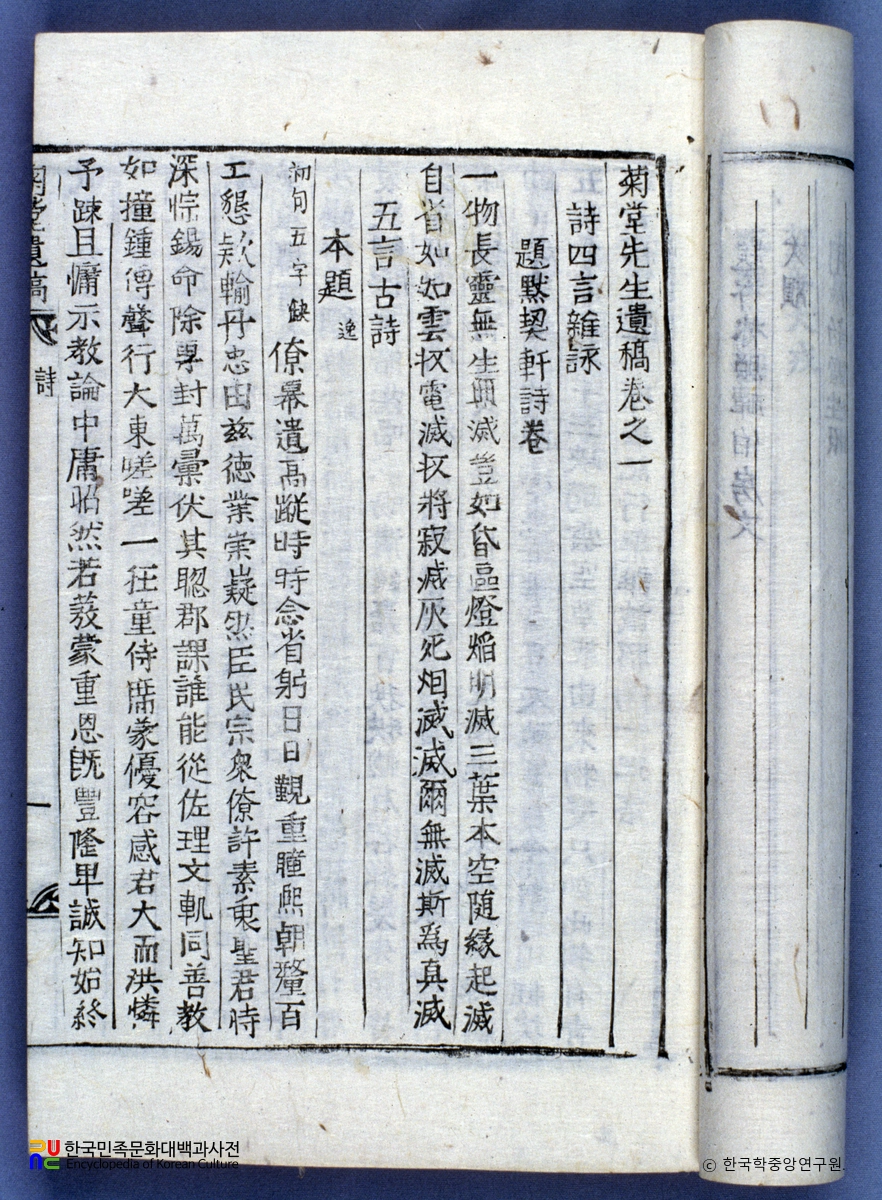 菊堂先生遺稿卷之一
詩四言雜詠
題默契軒詩卷
一物長靈無生無滅豈如昏區燈焰明滅三葉本空隨緣起滅
自省如如雲收電滅收將寂滅灰死烟滅滅爾無滅斯爲真滅
五言古詩
本題 逸
初旬五字缺 僚幕遺高蹤時時念省躬日日觀重瞳熙朝釐百
工懇欵輸丹忠由玆德業崇嶷然臣民宗衆僚許素衷聖君時
深悰錫命除專封萬彙伏其聦郡課誰能從佐理文軌同善教
如撞鍾傳聲行大東嗟嗟一狂童侍席蒙優容感君大而洪憐
予踈且慵示教論中庸昭然若發蒙重恩旣豐隆卑誠知始終
菊堂遺稿 詩 一
한국민족문화대백과사전
Encyclopedia of Korean Culture
© 한국학중앙연구원